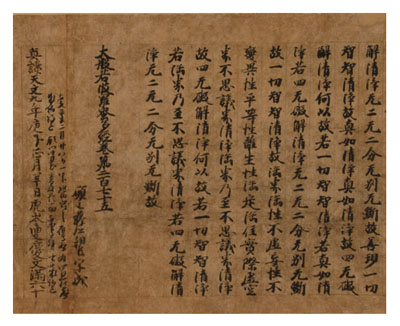 解清淨无二无二分无別无斷故善現一切
智智清淨故真如清淨真如清淨故四无礙
解清淨何以故若一切智智清淨若真如清
淨若四无礙解清淨无二无二分无別无斷
故一切智智清淨故法界法性不虛妄性不
變異性平等性離生性法定法住實際虛空
界不思議界清淨法界乃至不思議界清淨
故四无礙解清淨何以故若一切智智清淨
若法界乃至不思議界清淨若四无礙解清
淨无二无二分无別无斷故
大般若波羅蜜多經卷第二百七十五
願主藤
天文九年庚子二月